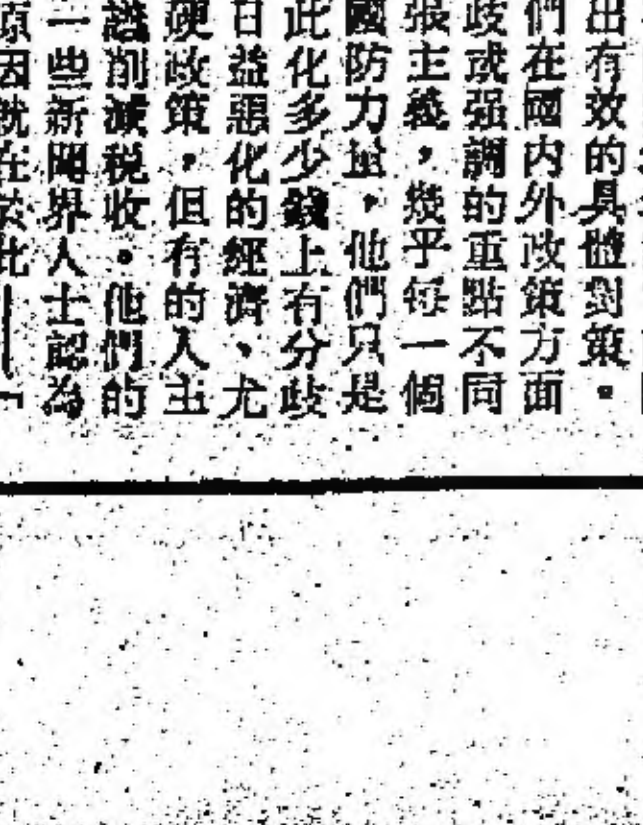 出有效的具體對策。
們在國内外政策方面
歧或强調的重點不同
張主義，幾乎每一個
國防力量，他們只是
此化多少錢上有分歧
日益惡化的經濟、尤
硬政策，但有的人主
議削減税收。他們的
一些新聞界人士認為
原因就在於此